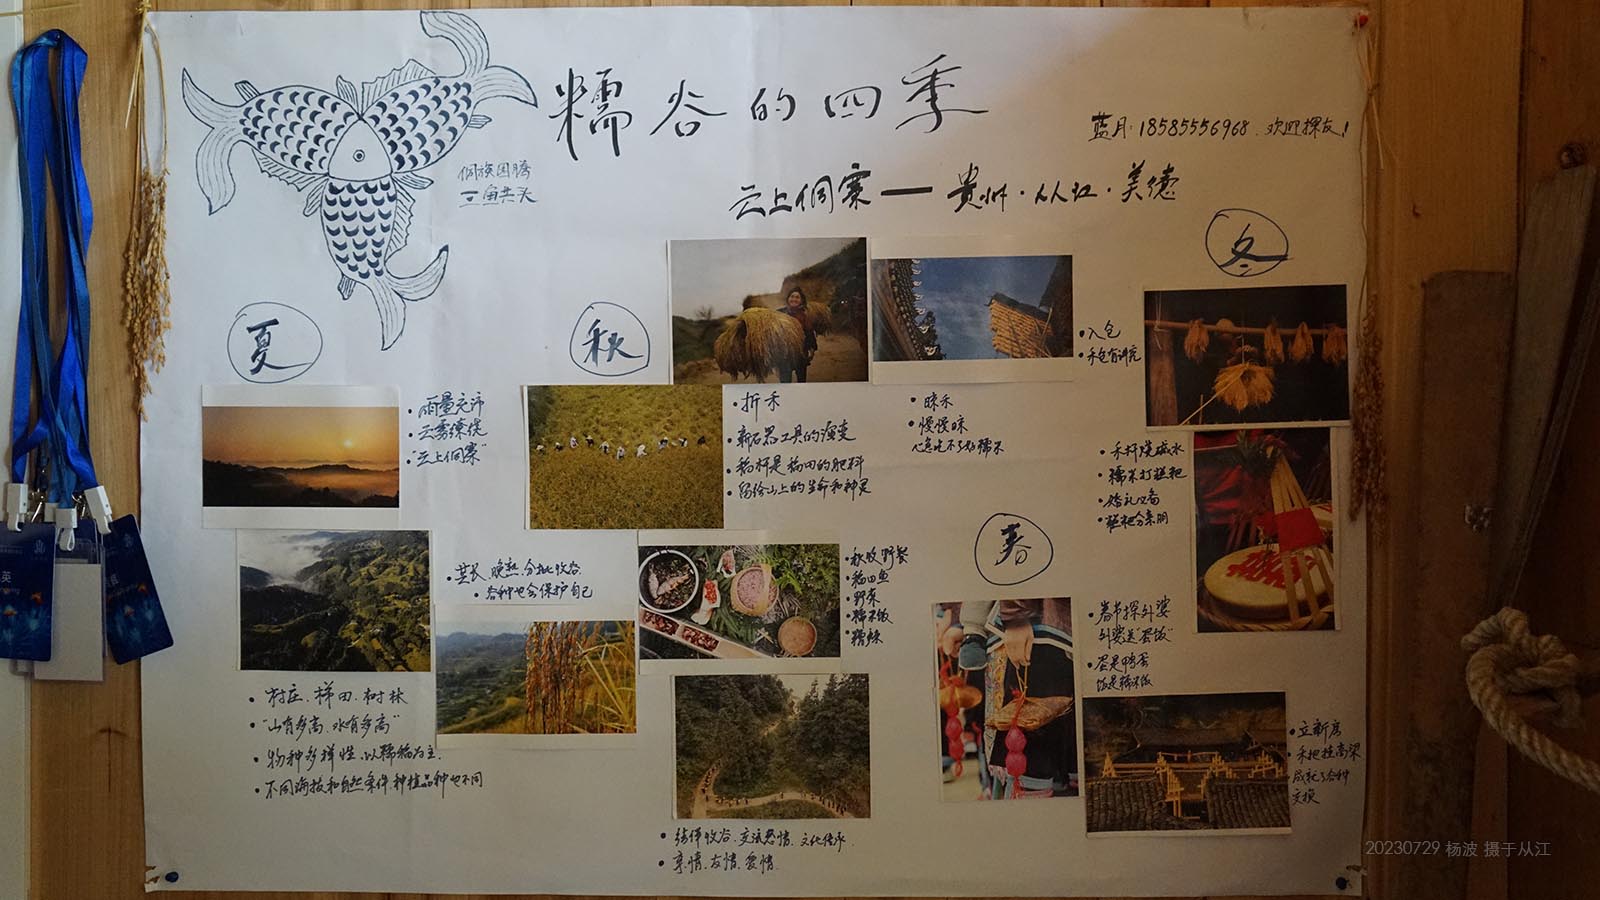 糯谷的四季
蓝月:18585556968.欢迎探友!
侗族图腾
三鱼共头
云上侗寨——贵州·从江·美德
夏
• 雨量充沛
• 云雾缭绕
• “云上侗寨”
• 村庄、梯田、树林
• “山有多高、水有多高”
• 物种多样性、以糯稻为主.
• 不同海拔和自然条件.种植品种也不同
• 芒长、晚熟.分批收谷.
• 谷种也会保护自己
秋
• 折禾
• 新石器工具的演变
• 稻杆是稻田的肥料
• 留给山上的生命和神灵
• 晾禾
• 慢慢晾
心急吃不了好糯米
• 入仓
• 禾仓有讲究
• 秋收野餐
• 稻田鱼
• 野菜
• 糯米饭
• 糟辣
• 结伴收谷.交流感情.文化传承.
• 亲情、友情、爱情.
冬
• 禾杆烧碱水
• 糯米打糍粑
• 婚礼必备
• 糍粑分亲朋
春
• 春节探外婆
外婆送“蛋饭”
• 蛋是鸭蛋
饭是糯米饭
• 立新房
• 禾把挂高梁
成就了谷种
交换
20230729 杨波 摄于从江